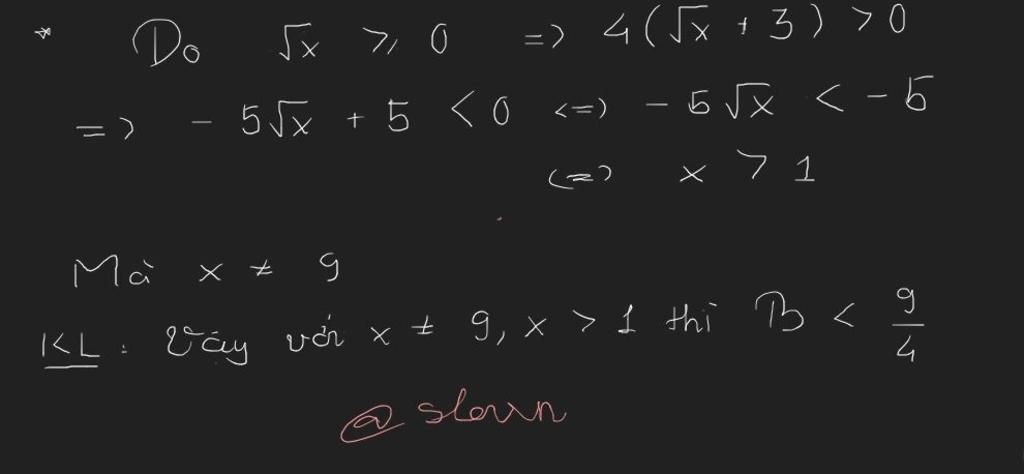 * Do √x ≥ 0 => 4(√x + 3) > 0
=> - 5√x + 5 < 0 <=> - 5√x < - 5
<=> x > 1
Mà x ≠ 9
KL: Vậy với x ≠ 9, x > 1 thì B < 9/4